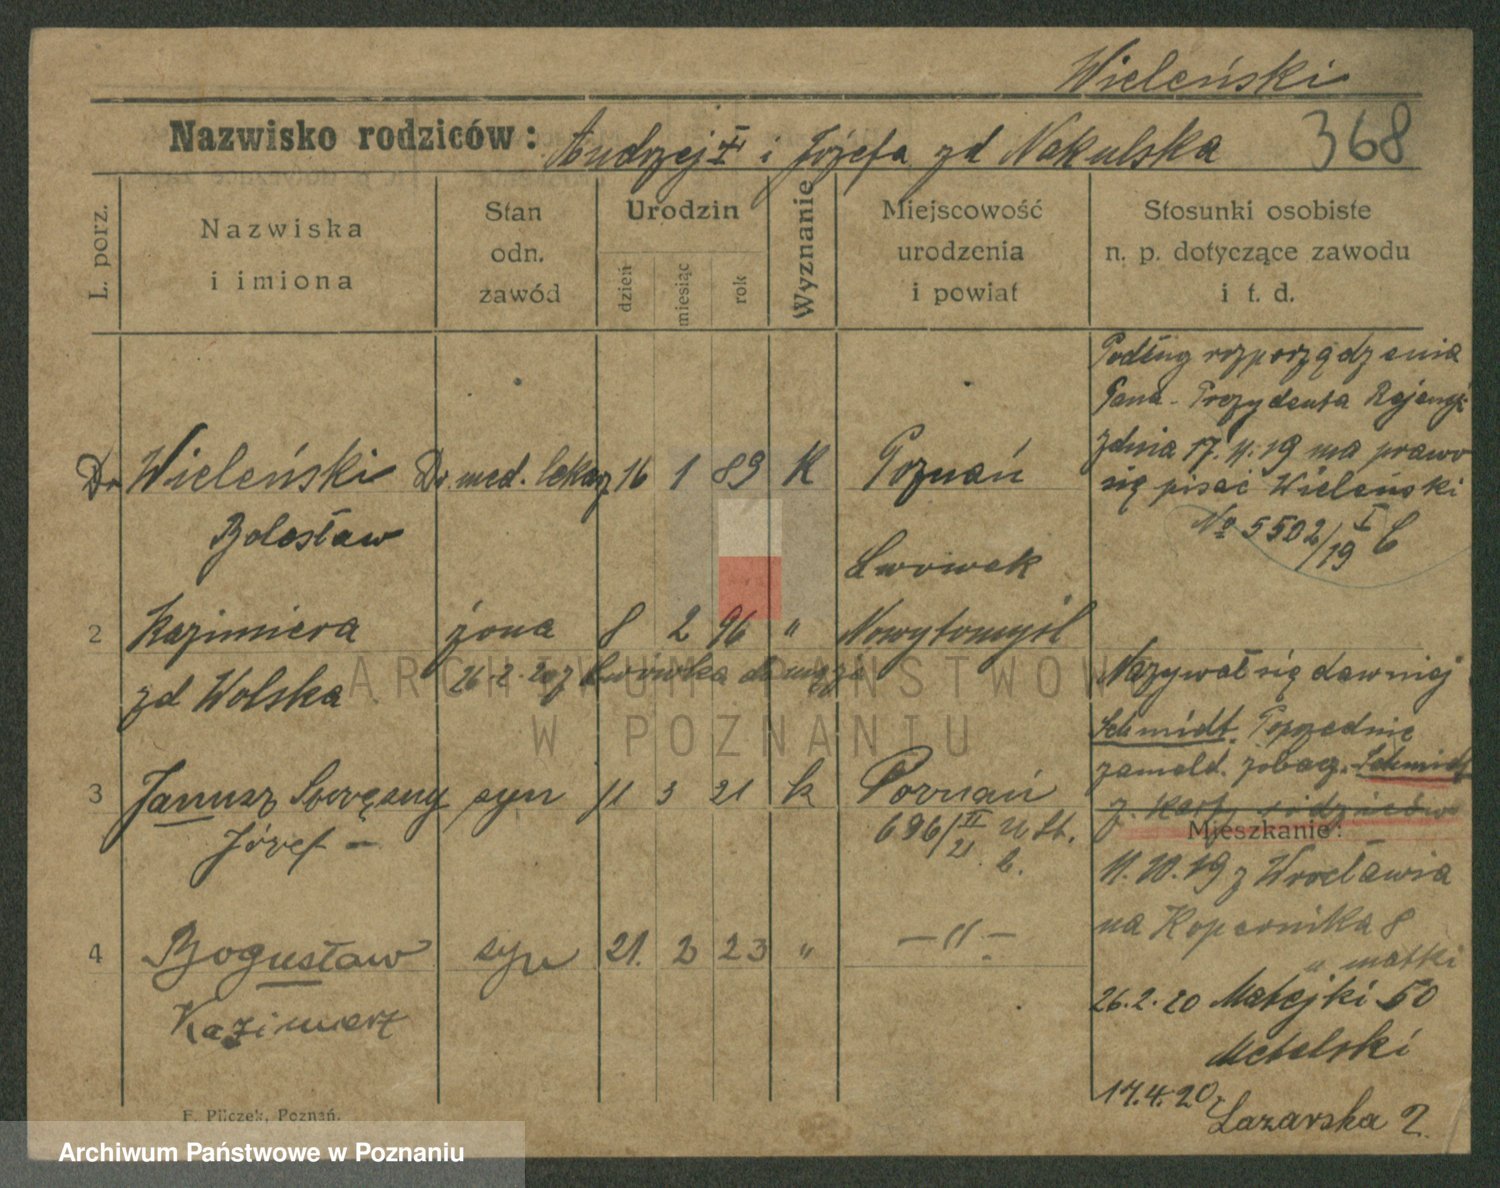 Wieleński
Nazwisko rodziców: Andrzej † i Józefa zd Nakulska 368
L. porz.
Nazwiska
i imiona
Stan
odn.
zawód
Urodzin
dzień
miesiąc
rok
Wyznanie
Miejscowość
urodzenia
i powiat
Stosunki osobiste
n. p. dotyczące zawodu
i t. d.
Podług rozporządzenia
Pana Prezydenta Rejencji
zdnia 17.11.19 ma prawo
się pisać Wieleński
No 5502/19 I C
Dr Wieleński Dr. med. lekarz 16 1 89 K Poznań
Bolesław
Lwówek
2 Kazimiera żona 8 2 96 " Nowytomyśl
zd Wolska 26.2.20 z Lwówka do męża
Nazywał się dawniej
Schmidt. Poprzednie
zameld. zobacz. Schmidt
z karty rodziców
3 Janusz syn 11 3 21 k Poznań
Józef -
696/II 21 U. St.
4 Bogusław syn 21. 2 23 " —"—
Kazimierz
Mieszkanie:
11.10.19 z Wrocławia
na Kopernika 8
" matki
26.2.20 Matejki 50
Metelski
17.4.20 Łazarska 2.
F. Pilczek, Poznań.
ARCHIWUM PAŃSTWOWE
W POZNANIU
Archiwum Państwowe w Poznaniu